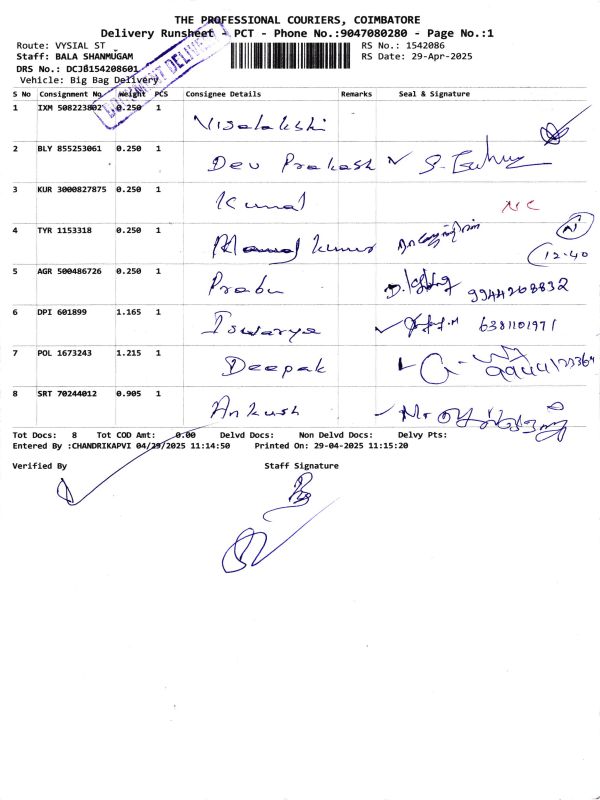 THE PROFESSIONAL COURIERS, COIMBATORE
Delivery Runsheet - PCT - Phone No.:9047080280 - Page No.:1
Route: VYSIAL ST RS No.: 1542086
Staff: BALA SHANMUGAM RS Date: 29-Apr-2025
DRS No.: DCJB154208601
Vehicle: Big Bag Delivery
S No Consignment No Weight PCS Consignee Details Remarks Seal & Signature
1 IXM 508223802 0.250 1 Visalakshi
2 BLY 855253061 0.250 1 Dev Prakash
3 KUR 3000827875 0.250 1 Kunal NC
4 TYR 1153318 0.250 1 Kumar 12.40
5 AGR 500486726 0.250 1 Prabu 9944208832
6 DPI 601899 1.165 1 Iswarya 6381101971
7 POL 1673243 1.215 1 Deepak
8 SRT 70244012 0.905 1 Ankush
Tot Docs: 8 Tot COD Amt: 0.00 Delvd Docs: Non Delvd Docs: Delvy Pts:
Entered By :CHANDRIKAPVI 04/29/2025 11:14:50 Printed On: 29-04-2025 11:15:20
Verified By Staff Signature